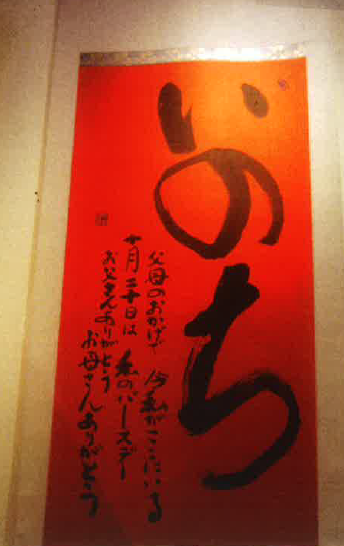 いのち
父母のおかげや 今私がここにいる
十月二十日は 私のバースデー
お父さんありがとう
お母さんありがとう